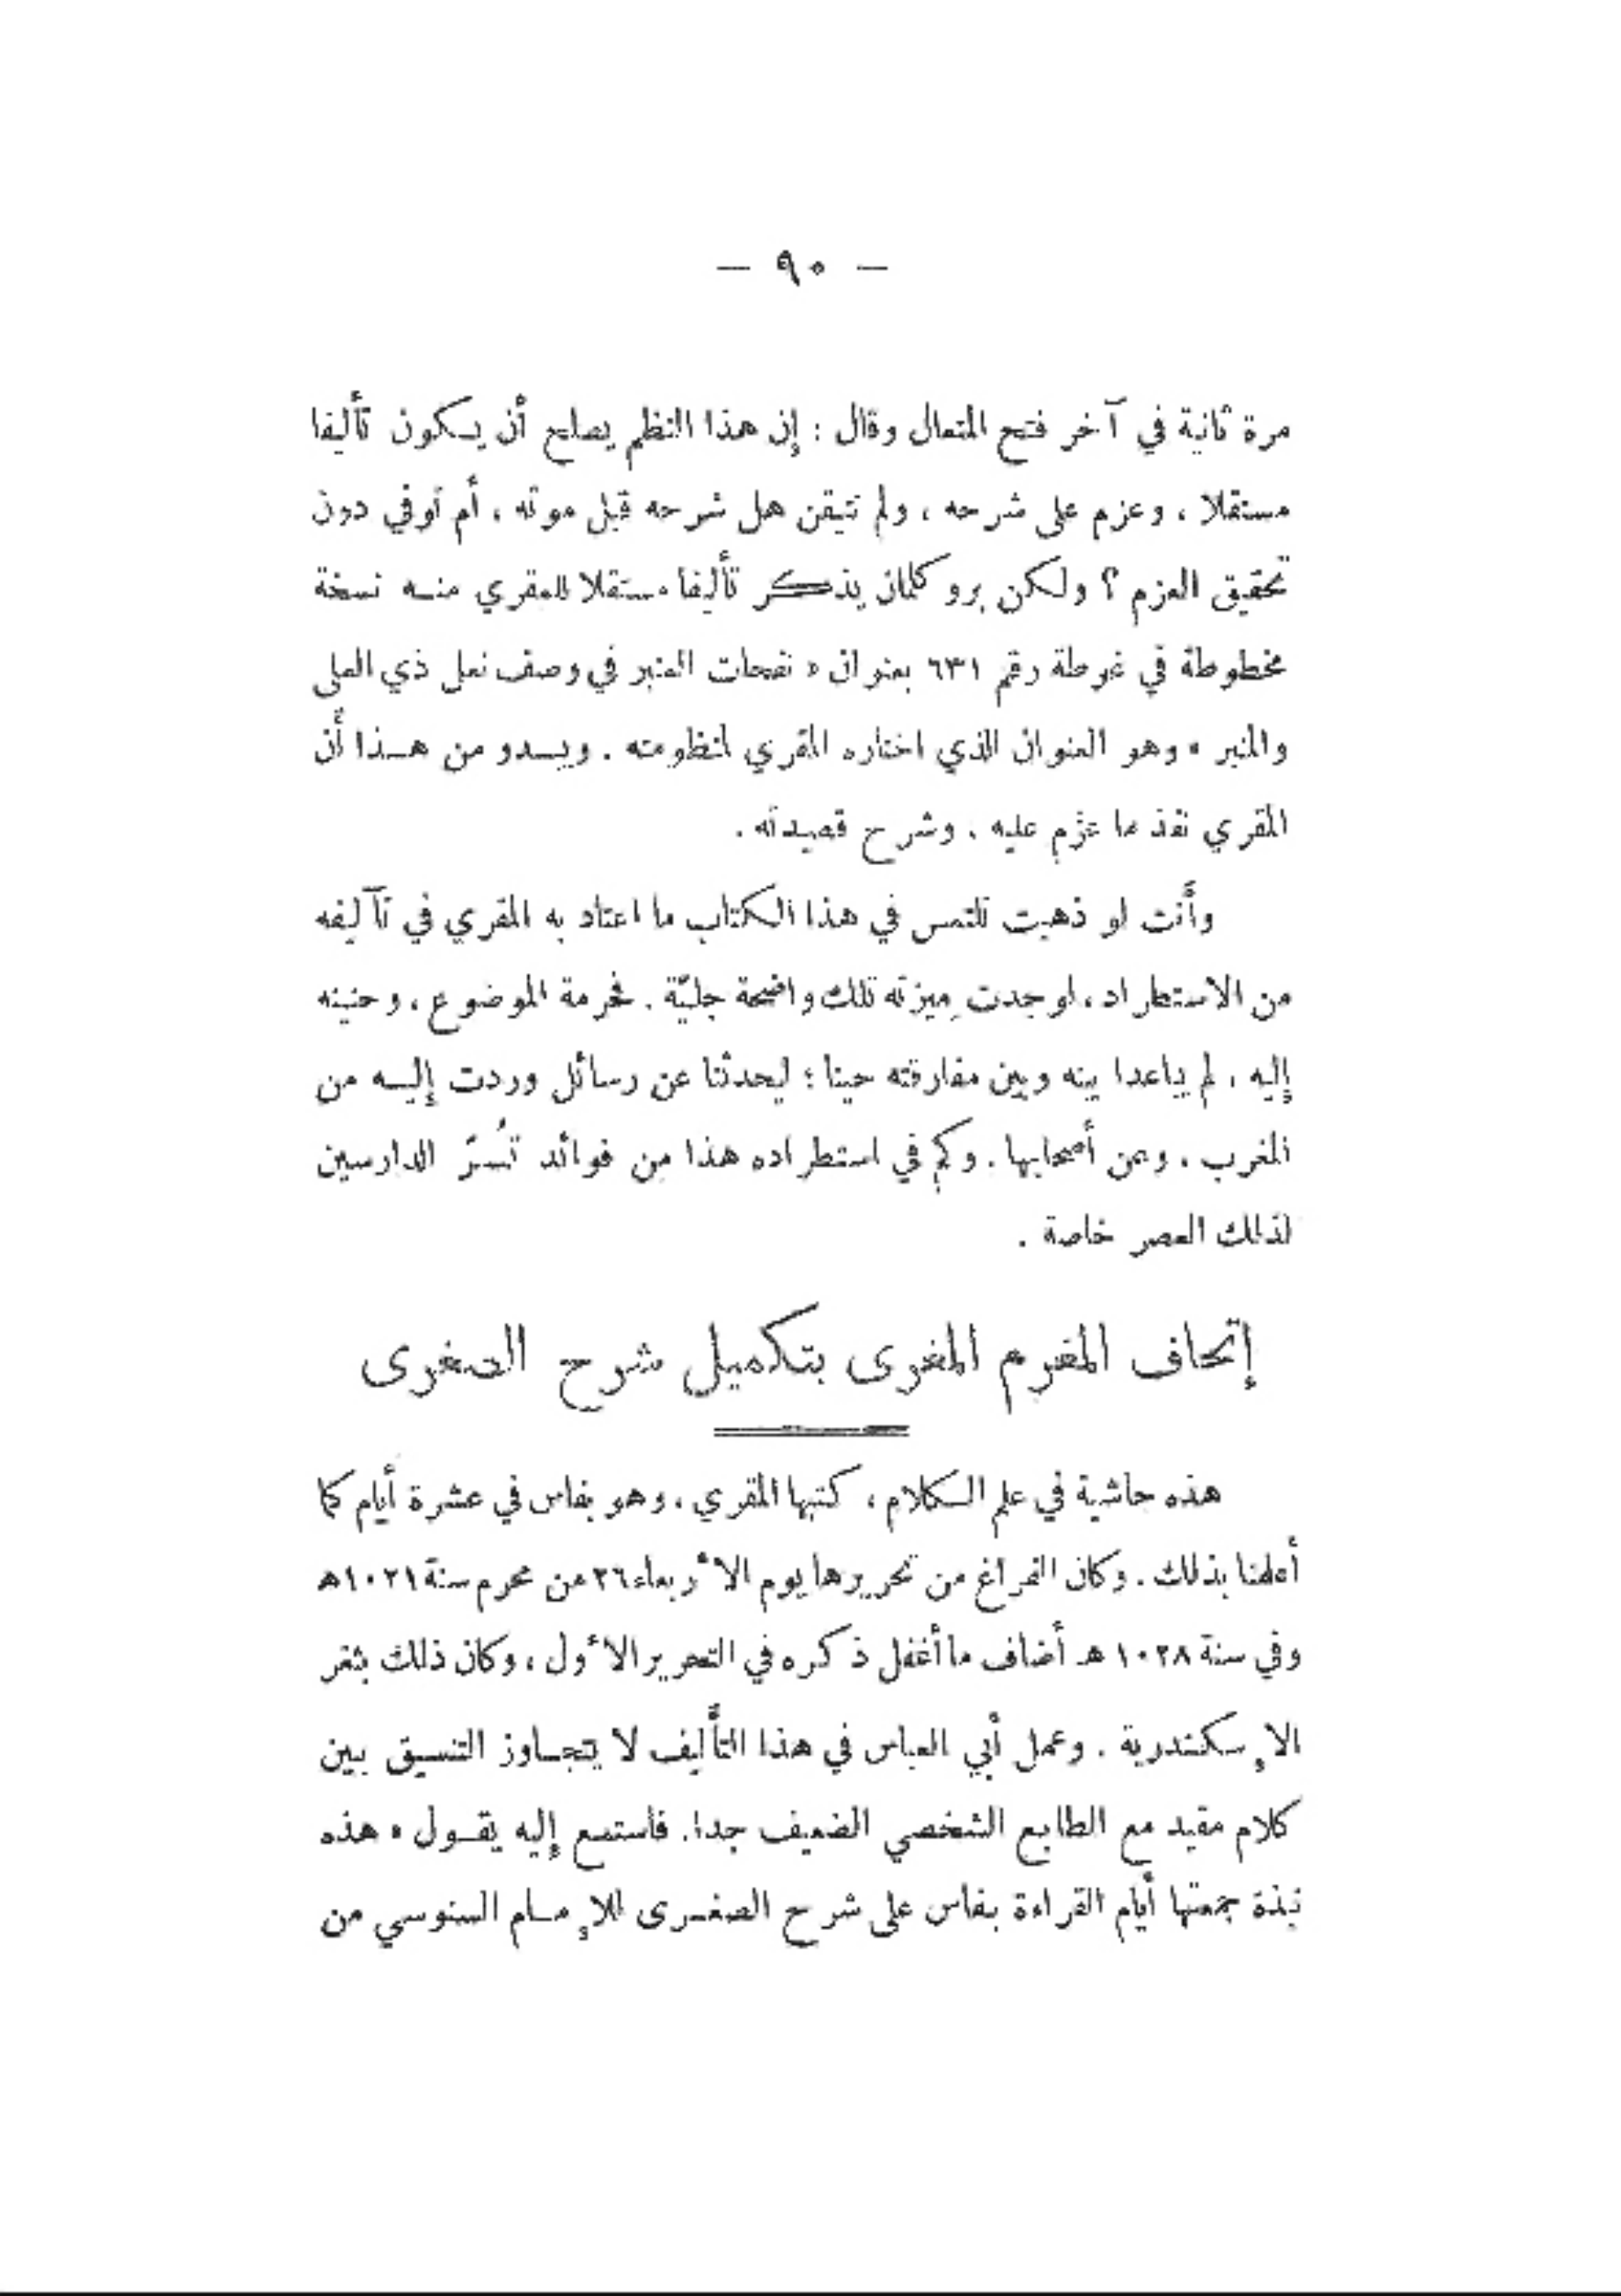 — ٩٠ —
مرة ثانية في آخر فتح المتعال وقال : إن هذا النظم يصلح أن يكون تأليفا
مستقلا ، وعزم على شرحه ، ولم نتيقن هل شرحه قبل موته ، أم توفي دون
تحقيق العزم ؟ ولكن بروكلمان يذكر تأليفا مستقلا للمقري منه نسخة
مخطوطة في غوطة رقم ٦٣١ بعنوان « نفحات العنبر في وصف نعل ذي العلى
والمنبر » وهو العنوان الذي اختاره المقري لمنظومته . ويبدو من هذا أن
المقري نفذ ما عزم عليه ، وشرح قصيدته .
وأنت لو ذهبت تلتمس في هذا الكتاب ما اعتاد به المقري في تآليفه
من الاستطراد ، لوجدت ميزته تلك واضحة جليّة . فحرمة الموضوع ، وحنينه
إليه ، لم يباعدا بينه وبين مفارقته حينا ؛ ليحدثنا عن رسائل وردت إليه من
المغرب ، وعن أصحابها . وكم في استطراده هذا من فوائد تسُرّ الدارسين
لذلك العصر خاصة .
إتحاف المغرم المغرى بتكميل شرح الصغرى
هذه حاشية في علم الكلام ، كتبها المقري ، وهو بفاس في عشرة أيام كما
أعلمنا بذلك . وكان الفراغ من تحريرها يوم الأربعاء ٢٦ من محرم سنة ١٠٢١ هـ
وفي سنة ١٠٢٨ هـ أضاف ما أغفل ذكره في التحرير الأول ، وكان ذلك بثغر
الإسكندرية . وعمل أبي العباس في هذا التأليف لا يتجاوز التنسيق بين
كلام مقيد مع الطابع الشخصي الضعيف جدا . فاستمع إليه يقول « هذه
نبذة جمعتها أيام القراءة بفاس على شرح الصغرى للإمام السنوسي من